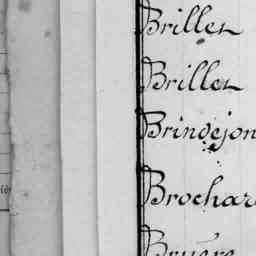 Brilles
Brilles
Brindejon
Brochar
Bruère